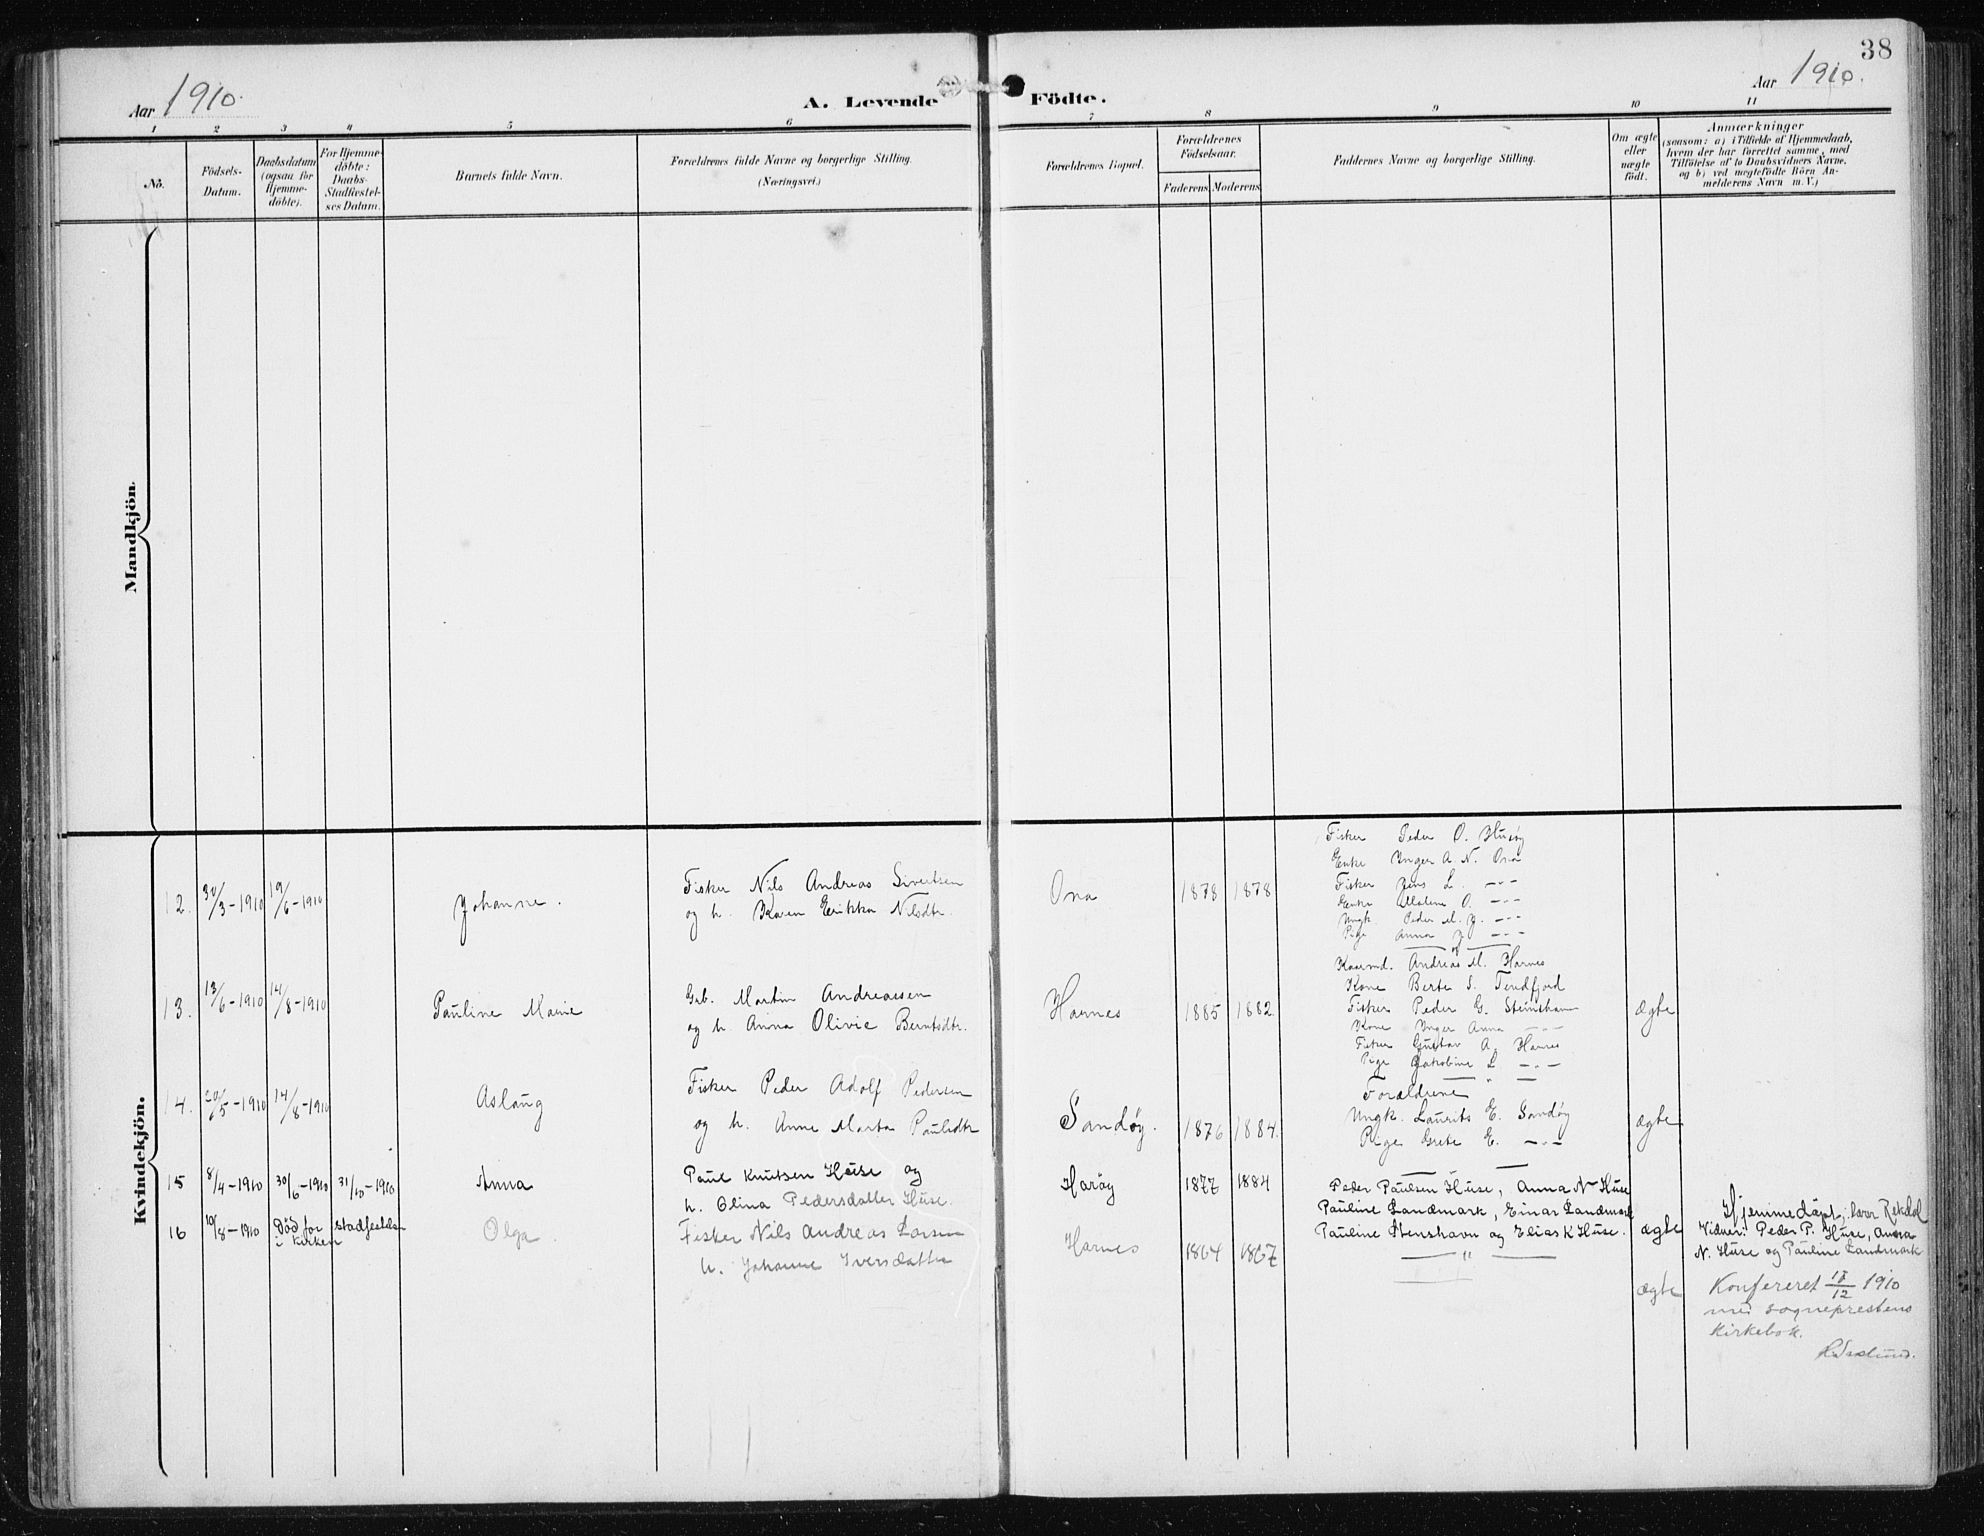 38
Aar 1910.
A. Levende Födte.
Aar 1910.
1 2 3 4 5 6 7 8 9 10 11
No.
Födsels-
Datum.
Daabsdatum
(ogsaa for
Hjemme-
döbte).
For Hjemme-
döbte:
Daabs-
Stadfæstel-
ses Datum.
Barnets fulde Navn.
Forældrenes fulde Navne og borgerlige Stilling.
(Næringsvei.)
Forældrenes Bopæl.
Forældrenes
Födselsaar.
Faderens. Moderens.
Faddernes Navne og borgerlige Stilling.
Om ægte
eller
uægte
født.
Anmærkninger
(saasom: a) i Tilfælde af Hjemmedaab,
hvem der har forrettet samme, med
Tilföielse af to Daabsvidners Navne,
og b) ved uægtefödte Börn An-
melderens Navn m. V.)
Mandkjön.
Kvindekjön.
12. 30/3-1910 19/6-1910
Johanne.
Fisker Nils Andreas Sivertsen
og h. Karen Erikka Nilsdtr.
Ona
1878 1878
Fisker Peder O. Husøy
Enke Inger A. N. Ona
Fisker Jens L. -"-
Enke Malene O. -"-
Ungk. Peder M. J. -"-
Pige Anna J. -"-
13. 13/6-1910 14/8-1910
Pauline Marie
Gab. Martin Andreassen
og h. Anna Olivie Berntsdtr.
Harnes
1885 1882
Kaarmd. Andreas M. Harnes
Kone Berte S. Tendfjord
Fisker Peder G. Steinshavn
Kone Inger Anna -"-
Fisker Gustav A. Harnes
Pige Jakobine L -"-
ægte
14. 20/5-1910 14/8-1910
Aslaug
Fisker Peder Adolf Pedersen
og h. Anne Marta Paulsdtr
Sandøy.
1876 1884.
Forældrene
Ungk. Laurits E. Sandøy
Pige Grete E. -"-
ægte
15 8/4-1910 30/6-1910 31/10-1910
Anna
Paul Knutsen Huse og
h. Olina Pedersdatter Huse.
Harøy
1877 1884
Peder Paulsen Huse, Anna N Huse
Pauline Landmark, Einar Landmark
Pauline Stenshavn og Elias K Huse.
ægte
Hjemmedøpt, Rekdal
Vidner: Peder P. Huse, Anna
N. Huse og Pauline Landmark
16 10/8-1910 Død før stadfestelsen
i kirken
Olga.
Fisker Nils Andreas Larsen
h. Johanne Iversdatter
Harnes
1864 1867
"
ægte
Konfereret 18/12 1910
med sogneprestens
kirkebok.